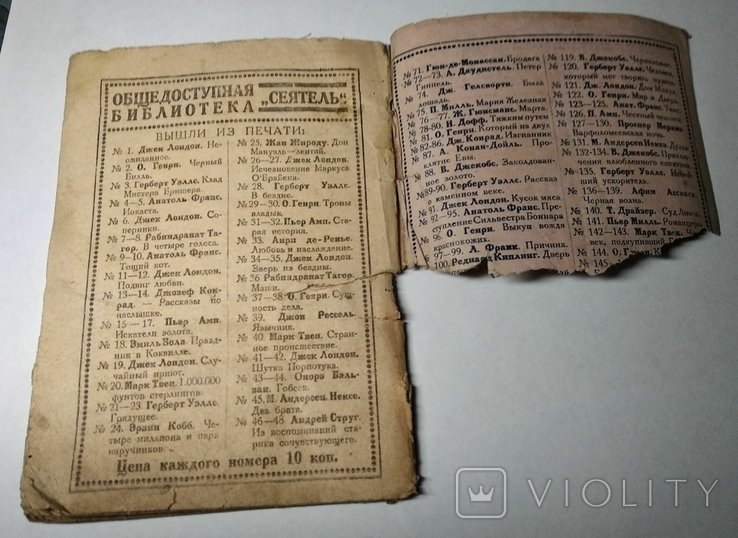 ОБЩЕДОСТУПНАЯ
БИБЛИОТЕКА „СЕЯТЕЛЬ“
ВЫШЛИ ИЗ ПЕЧАТИ:
№ 1. Джек Лондон. Не-
ожиданное.
№ 2. О. Генри. Черный
Билль.
№ 3. Герберт Уэллс. Клад
Мистера Бришера.
№ 4—5. Анатоль Франс.
Иокаста.
№ 6. Джек Лондон. Со-
перники.
№ 7—8. Рабиндранат Та-
гор. В четыре голоса.
№ 9—10. Анатоль Франс.
Тощий кот.
№ 11—12. Джек Лондон.
Подвиг любви.
№ 13—14. Джозеф Кон-
рад. — Рассказы по
наслышке.
№ 15—17. Пьер Амп.
Искатели золота.
№ 18. Эмиль Зола. Празд-
ник в Коквилле.
№ 19. Джек Лондон. Слу-
чайный приют.
№ 20. Марк Твен. 1.000.000
фунтов стерлингов.
№ 21—23. Герберт Уэллс.
Грядущее.
№ 24. Эрвин Кобб. Че-
тыре миллиона и пара
наручников.
№ 25. Жан Жироду. Доп
Мануэль—лентяй.
№ 26—27. Джек Лондон.
Исчезновение Маркуса
О'Брабена.
№ 28. Герберт Уэллс.
В бездне.
№ 29—30. О. Генри. Троны
владык.
№ 31—32. Пьер Амп. Ста-
рая история.
№ 33. Анри де-Ренье.
Любовь и наслаждение.
№ 34—35. Джек Лондон.
Зверь из бездны.
№ 36 Рабиндранат Тагор.
Маши.
№ 37—38. О. Генри. Сущ-
ность дела.
№ 39. Джон Рессель.
Язычник.
№ 40 Марк Твен. Стран-
ное происшествие.
№ 41—42. Джек Лондон.
Шутка Порпотука.
№ 43—44. Онорэ Баль-
зак. Гобсек.
№ 45. М. Андерсен Нексе.
Два брата.
№ 46—48 Андрей Струг.
Из воспоминаний ста-
рика сочувствующего.
Цена каждого номера 10 коп.
№ 71. Гюи-де-Мопассан. Бродяга
№ 72—73. А. Даудистель. Петер
Гиппель.
№ 74. Дж. Гелсворти. Была
лошадь.
№ 75. П. Милль. Мария Железная
№ 76—77. Ж. Гюисманс. Марта.
№ 78-80. Н. Дофф. Тяжким путем
№ 81. О. Генри. Который из двух
№ 82-86. Дж. Конрад. Изгнанник
№ 87. А. Конан-Дойль. Про-
клятие Евы.
№ 88. В. Джекобс. Заколдован-
ное золото.
№ 89-90. Герберт Уэллс. Рассказ
о каменном веке.
№ 91. Джек Лондон. Кусок мяса
№ 92—95. Анатоль Франс. Пре-
ступление Сильвестра Боннара
№ 96. О. Генри. Выкуп вождя
краснокожих.
№ 97—99. А. Франк. Причина.
№ 100. Редиард Киплинг. Дверь
№ 119. В. Джекобс.
№ 120. Герберт Уэллс. Человек,
который мог творить
№ 121. Дж. Лондон. Дом Мапуи
№ 122. О. Генри. Мир и Дверь
№ 123—125. Анат. Франс.
№ 126. П. Амп. Честный человек
№ 127—130. Проспер Меримэ
Варфоломеевская ночь.
№ 131. М. Андерсен Нексэ.
№ 132-134. В. Джекобс. Приклю-
чения влюбленного капитана.
№ 135. Герберт Уэллс. Новей-
ший ускоритель.
№ 136—139. Афин
Черная волна.
№ 140. Т. Драйзер. Суд
№ 141. Пьер Милль.
№ 142—143. Марк Твен.
век, подкупивший
№ 144. О. Генри.
№ 145.
VIOLITY